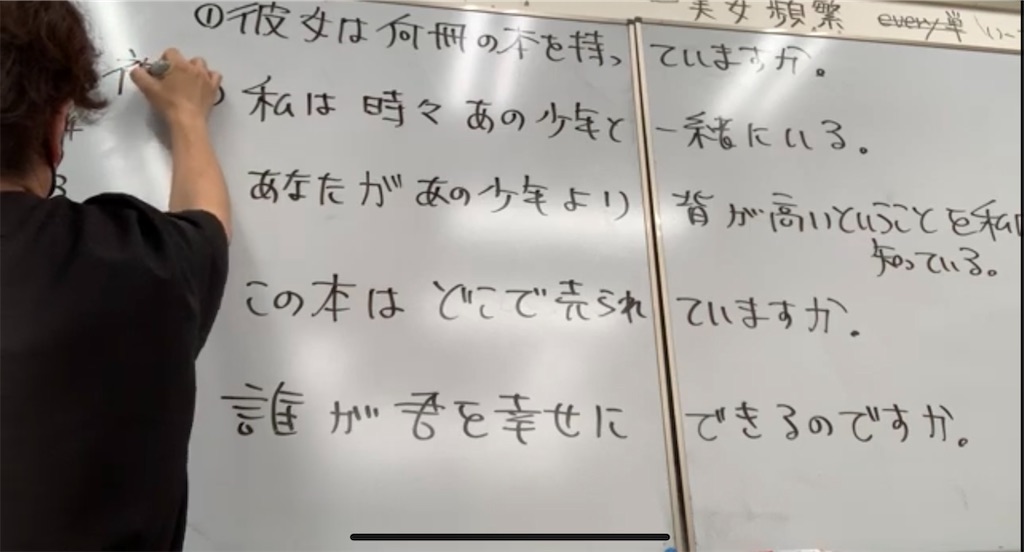 実 文 頻繁 every 単
①彼女は何冊の本を持っていますか。
私は時々あの少年と一緒にいる。
あなたがあの少年より背が高いということを私は
知っている。
この本はどこで売られていますか.
誰が君を幸せにできるのですか。